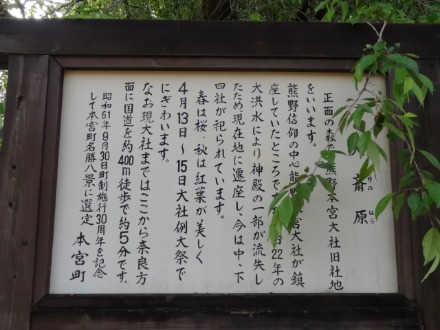 斎原
の はら
正面の森が熊野本宮大社旧社地
をいいます。
熊野信仰の中心熊 宮大社が鎮
座していたところで 治22年の
大洪水により神殿の一部が流失し
たため現在地に遷座し、今は中、下
四社が祀られています。
春は桜・秋は紅葉が美しく
4月13日～15日大社例大祭で
にぎわいます。
なお現大社まではここから奈良方
面に国道を約400m徒歩で約5分です。
昭和61年9月30日町制施行30周年を記念
して本宮町名勝八景に選定 本宮町